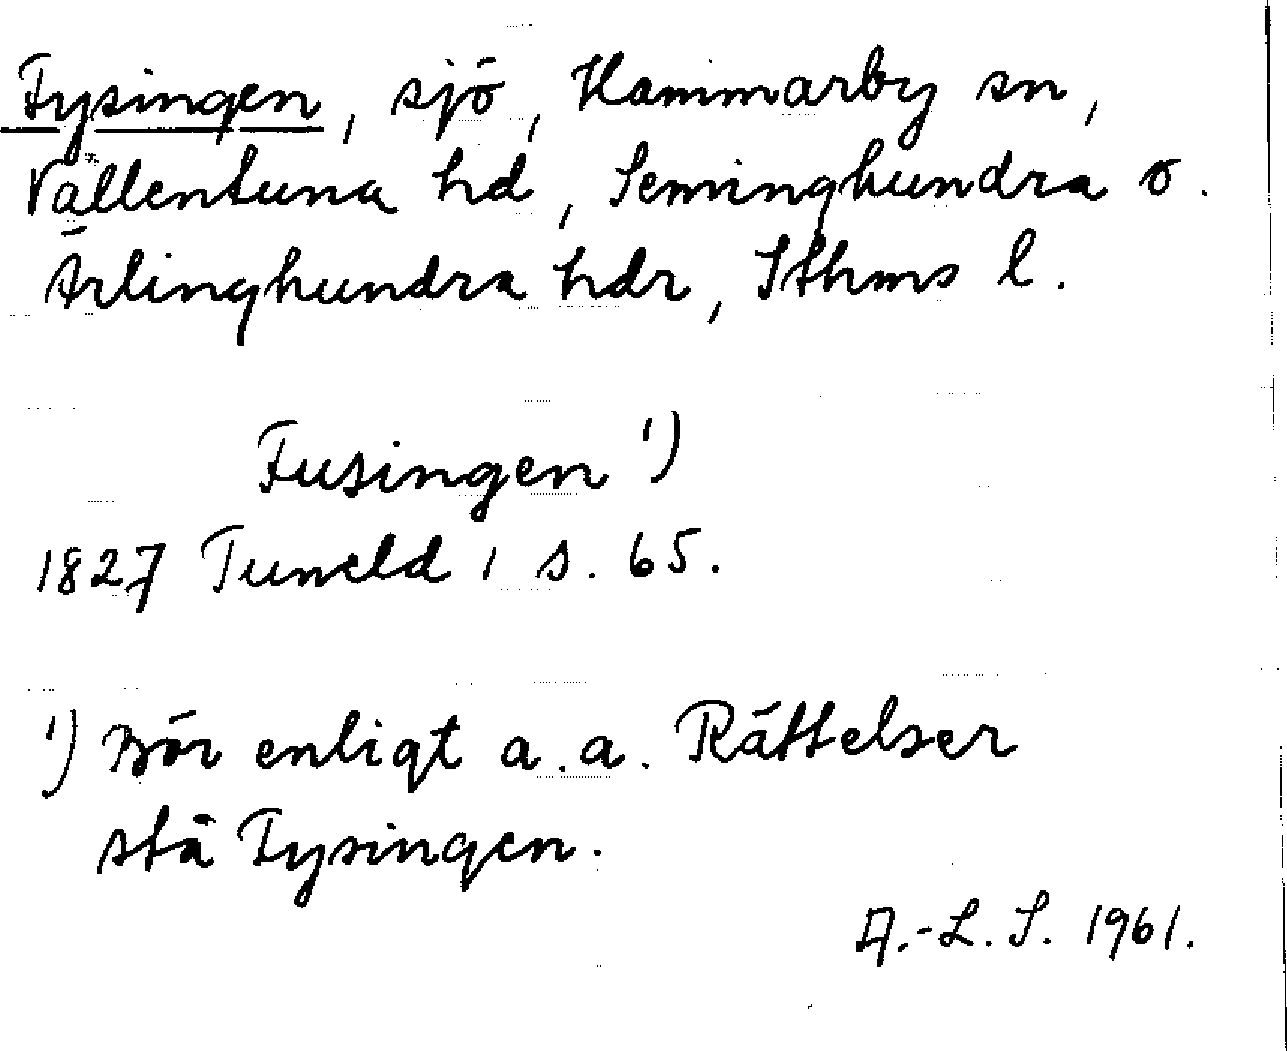 Fysingen, sjö, Hammarby sn,
Vallentuna hd, Seminghundra o.
Ärlinghundra hdr, Sthms l.
Fusingen ¹)
1827 Tuneld 1 s. 65.
¹) Bör enligt a.a. Rättelser
stå Fysingen.
A.-L. S. 1961.